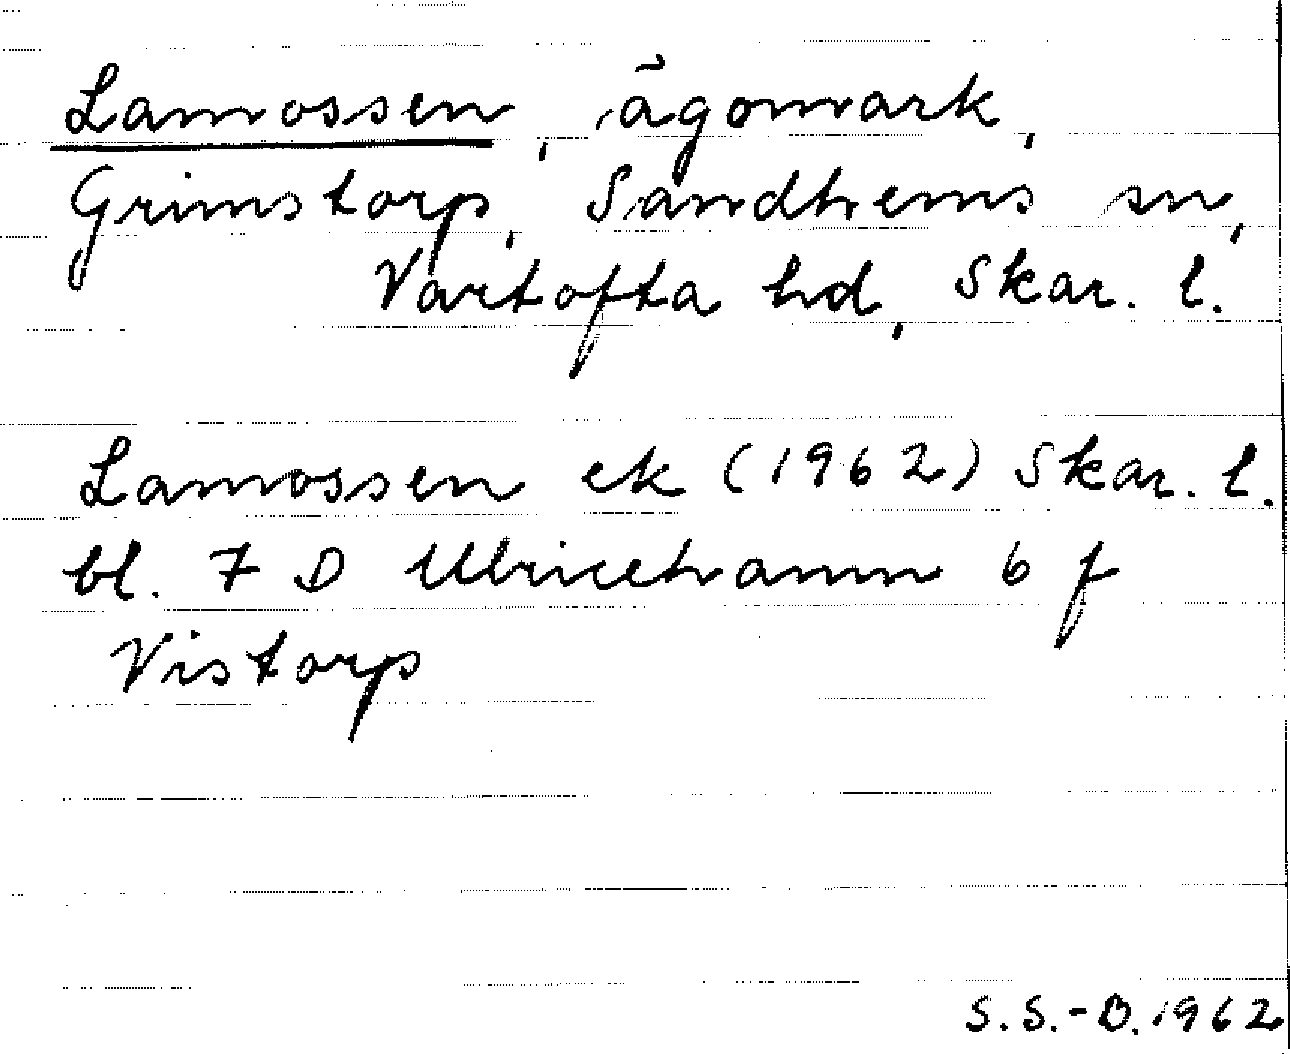 Lamossen, ägomark,
Grimstorp, Sandhems sn,
Vartofta hd, Skar. l.
Lamossen ek (1962) Skar. l.
bl. 7 D Ulricehamn 6 f
Vistorp
S.S.-D. 1962